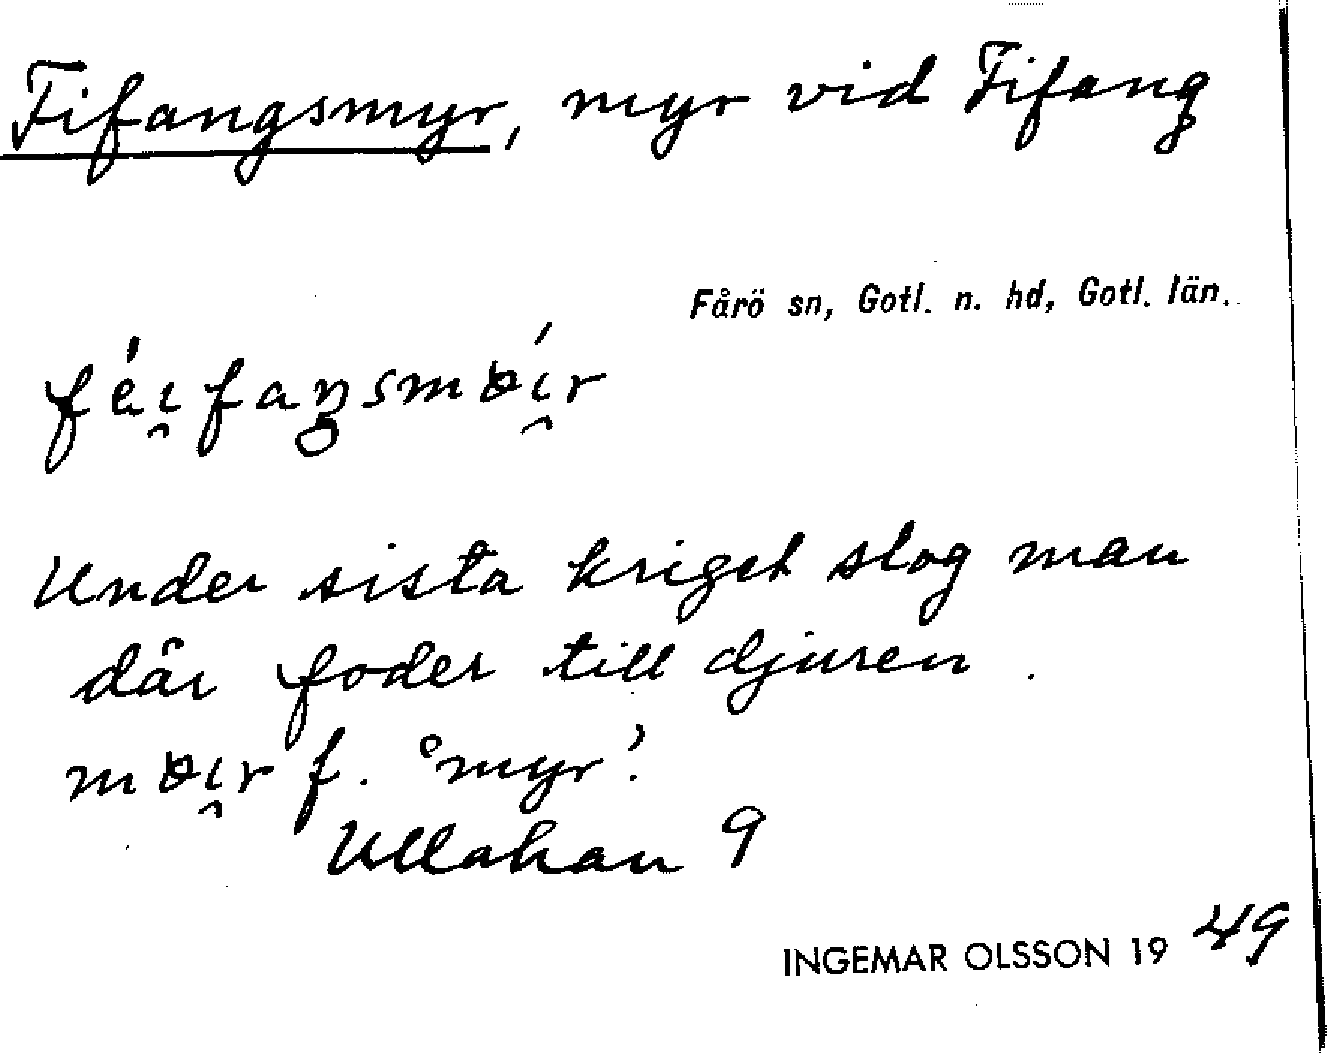 Fifangsmyr, myr vid Fifang
Fårö sn, Gotl. n. hd, Gotl. län.
Under sista kriget slog man
där foder till djuren.
f. °myr'.
Ullahau 9
INGEMAR OLSSON 19 49